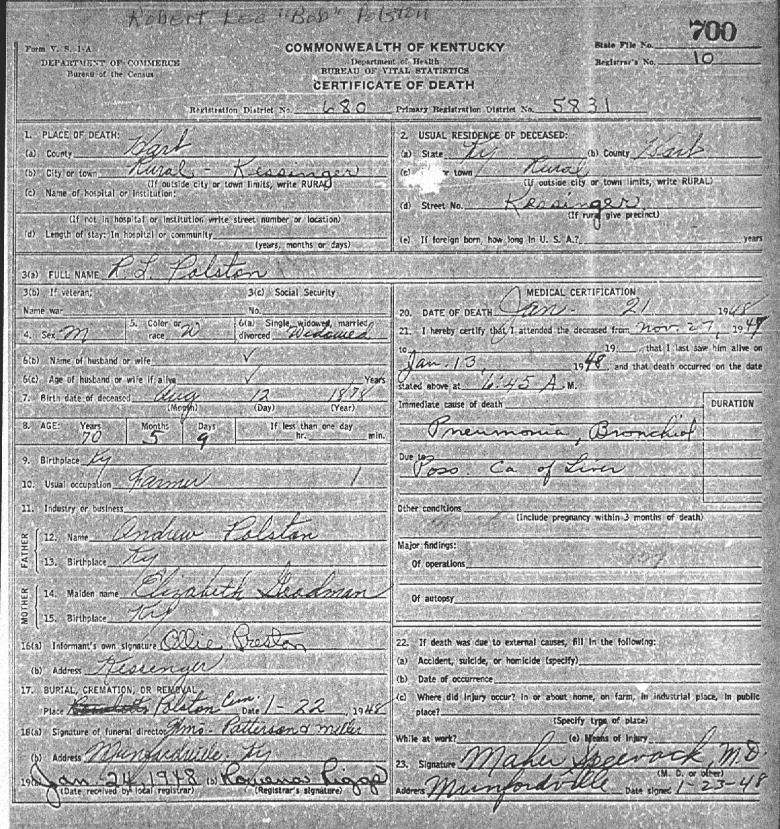 Robert Lee "Bob" Polston
700
Form V. S. 1-A
DEPARTMENT OF COMMERCE
Bureau of the Census
COMMONWEALTH OF KENTUCKY
Department of Health
BUREAU OF VITAL STATISTICS
CERTIFICATE OF DEATH
State File No.
Registrar's No. 10
Registration District No. 680 Primary Registration District No. 5831
1. PLACE OF DEATH:
(a) County Hart
(b) City or town Rural - Kessinger
(If outside city or town limits, write RURAL)
(c) Name of hospital or institution:
(If not in hospital or institution write street number or location)
(d) Length of stay: In hospital or community
(years, months or days)
2. USUAL RESIDENCE OF DECEASED:
(a) State Ky (b) County Hart
(c) town Rural
(If outside city or town limits, write RURAL)
(d) Street No. Kessinger
(If rural give precinct)
(e) If foreign born, how long in U. S. A.? years
3(a) FULL NAME R. L. Polston
3(b) If veteran: 3(c) Social Security
Name war No.
4. Sex M 5. Color or race W 6(a) Single, widowed, married divorced Widowed
6(b) Name of husband or wife ✓
6(c) Age of husband or wife if alive ✓ Years
7. Birth date of deceased Aug 12 1878
(Month) (Day) (Year)
8. AGE: Years Months Days If less than one day
70 5 9 hr. min.
9. Birthplace Ky
10. Usual occupation Farmer
11. Industry or business
FATHER
12. Name Andrew Polston
13. Birthplace Ky
MOTHER
14. Maiden name Elizabeth Goodman
15. Birthplace Ky
16(a) Informant's own signature Ollie Preston
(b) Address Kessinger
17. BURIAL, CREMATION, OR REMOVAL
Place Polston Cem. Date 1-22, 1948
18(a) Signature of funeral director Patterson & Miller
(b) Address Munfordville, Ky
19(a) Jan. 24, 1948 (b) Rowena Riggs
(Date received by local registrar) (Registrar's signature)
MEDICAL CERTIFICATION
20. DATE OF DEATH Jan - 21 1948
21. I hereby certify that I attended the deceased from Nov. 27, 1947
to 19 , that I last saw him alive on
Jan. 13, 1948, and that death occurred on the date
stated above at 6:45 A.M.
Immediate cause of death DURATION
Pneumonia, Bronchial
Due to
Poss. Ca of Liver
Other conditions
(Include pregnancy within 3 months of death)
Major findings:
Of operations
Of autopsy
22. If death was due to external causes, fill in the following:
(a) Accident, suicide, or homicide (specify)
(b) Date of occurrence
(c) Where did injury occur? In or about home, on farm, in industrial place, in public
place?
(Specify type of place)
While at work? (e) Means of Injury
23. Signature Maher Speevack, M.D.
(M. D. or other)
Address Munfordville Date signed 1-23-48